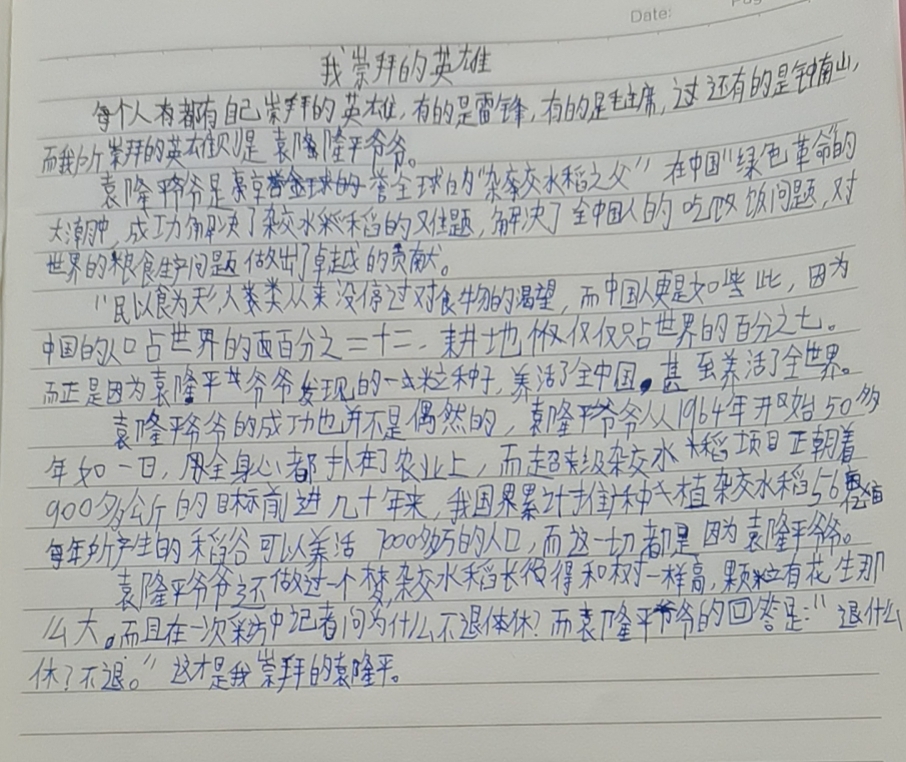 Date:
我崇拜的英雄
每个人有都有自己崇拜的英雄,有的是雷锋,有的是毛主席,过还有的是钟南山,
而我所崇拜的英雄则是袁隆平爷爷。
袁隆平爷爷是享誉全球的"杂交水稻之父"在中国"绿色革命的
大潮中,成功解决了杂交水稻的难题,解决了全中国人的吃饭问题,对
世界的粮食生产问题做出了卓越的贡献。
"民以食为天",人类从来没停过对食物的渴望,而中国人更是如此,因为
中国的人口占世界的百分之二十二,耕地仅仅只占世界的百分之七。
而正是因为袁隆平爷爷发现的一粒种子,养活了全中国,甚至养活了全世界。
袁隆平爷爷的成功也并不是偶然的,袁隆平爷爷从1964年开始50多
年如一日,用全身心都扑在了农业上,而超级杂交水稻项目正朝着
900多公斤的目标前进几十年来,我国累计推种植杂交水稻56
每年所产生的稻谷可以养活7000多万的人口,而这一切都是因为袁隆平爷爷。
袁隆平爷爷还做过一个梦,杂交水稻长得和树一样高,颗粒有花生那
么大。而且在一次采访中记者问为什么不退休?而袁隆平爷爷的回答是:"退什么
休?不退。"这才是我崇拜的袁隆平。